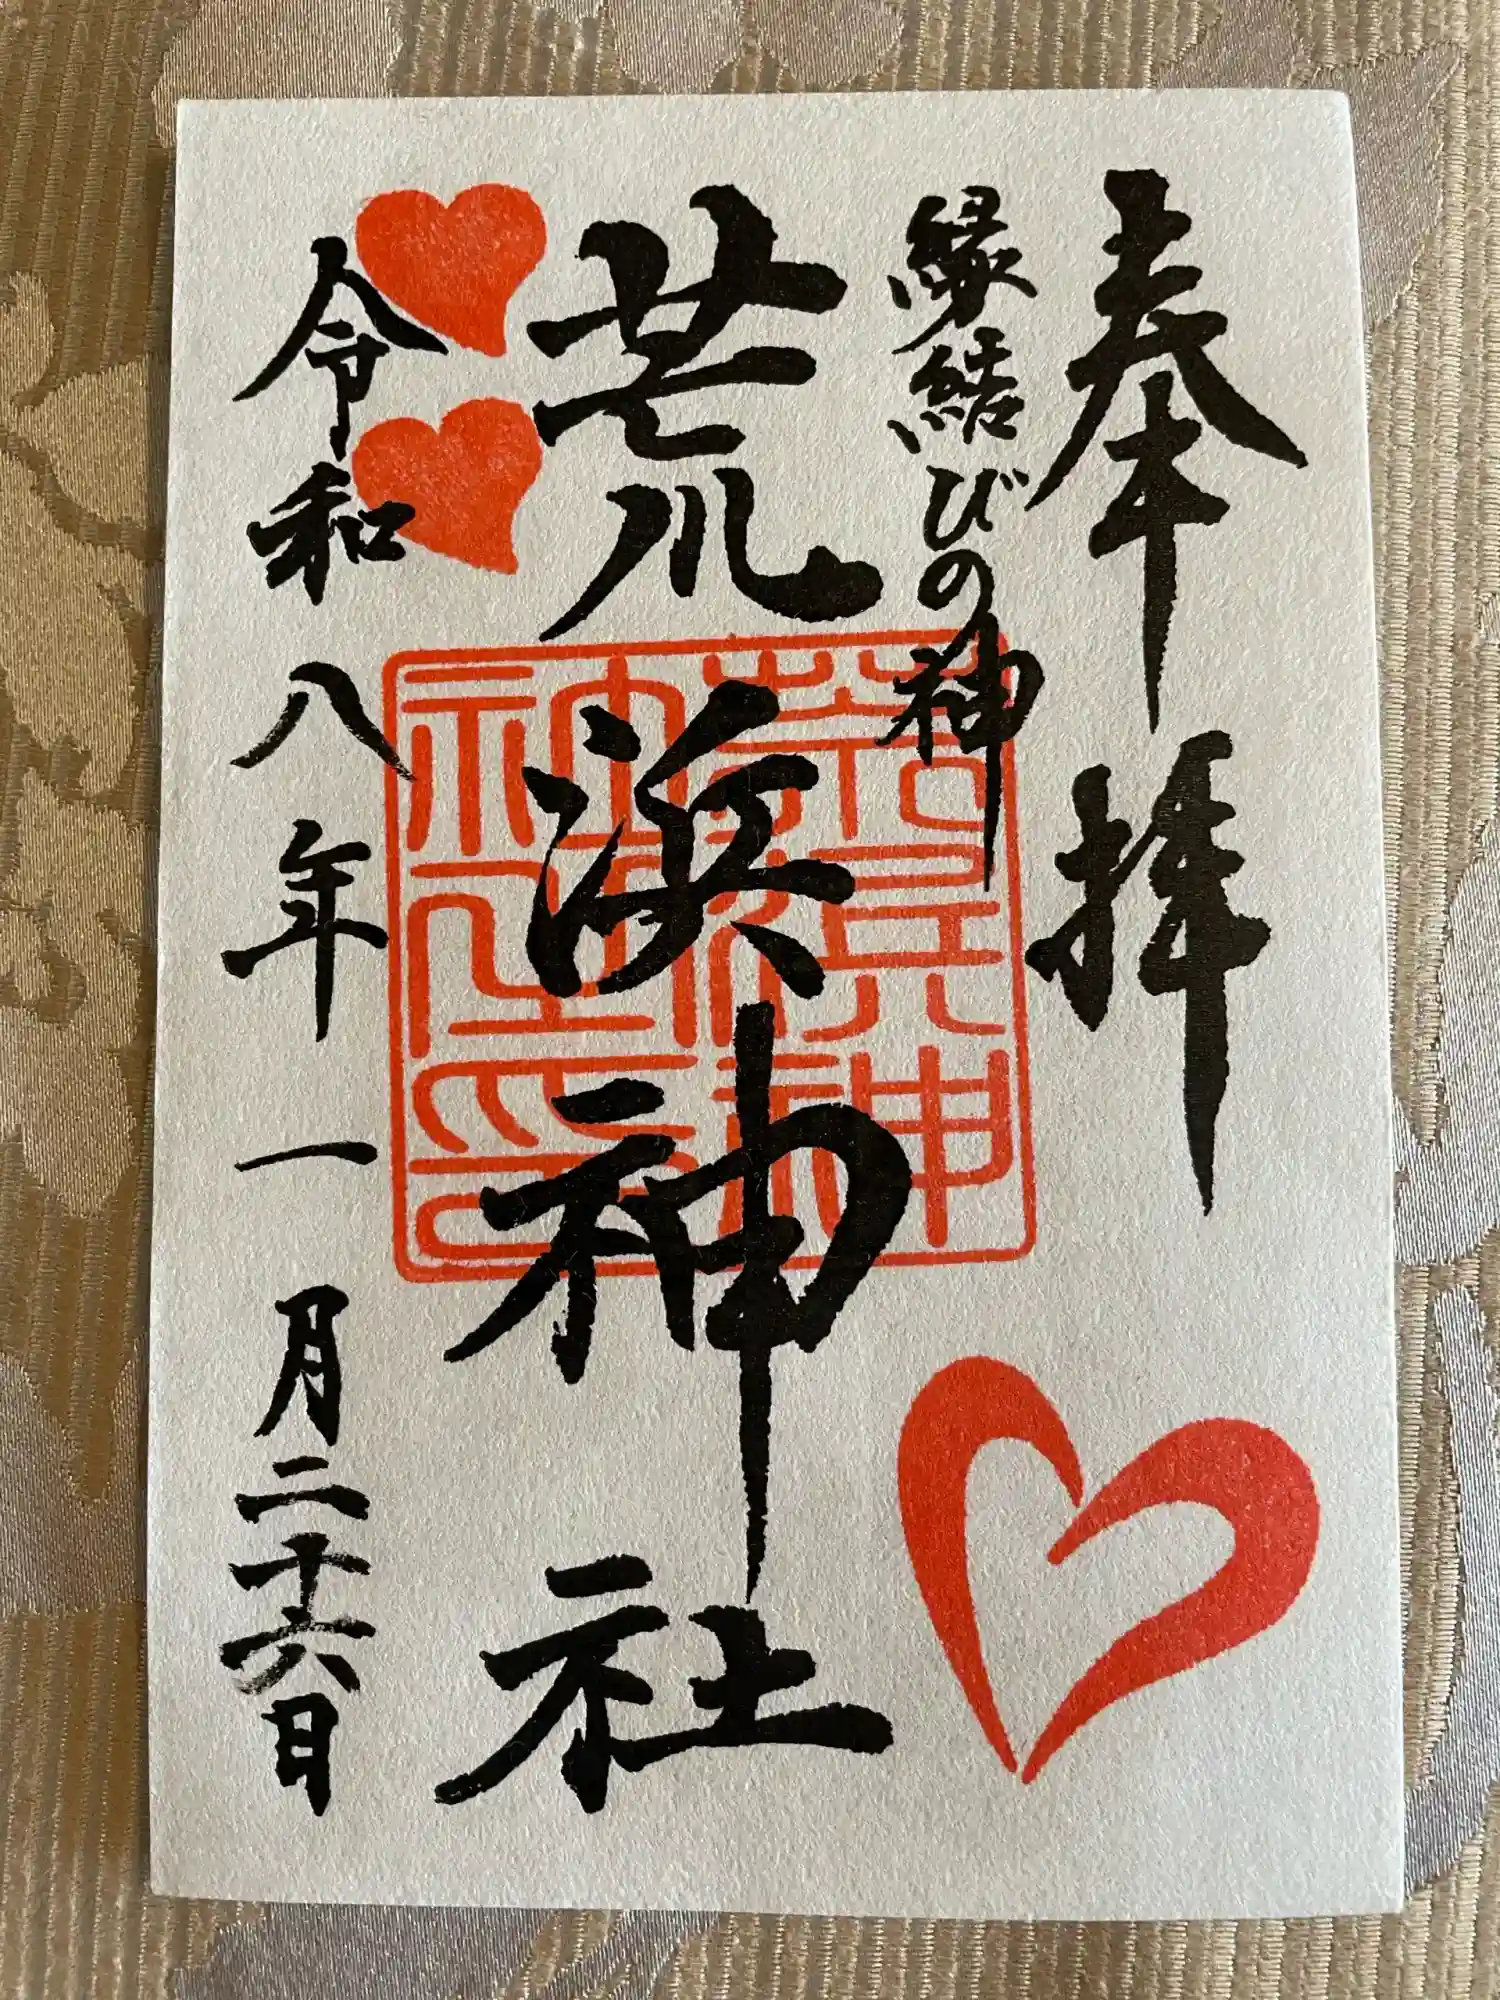 奉拝
縁結びの神
荒浜神社
令和八年一月二十六日